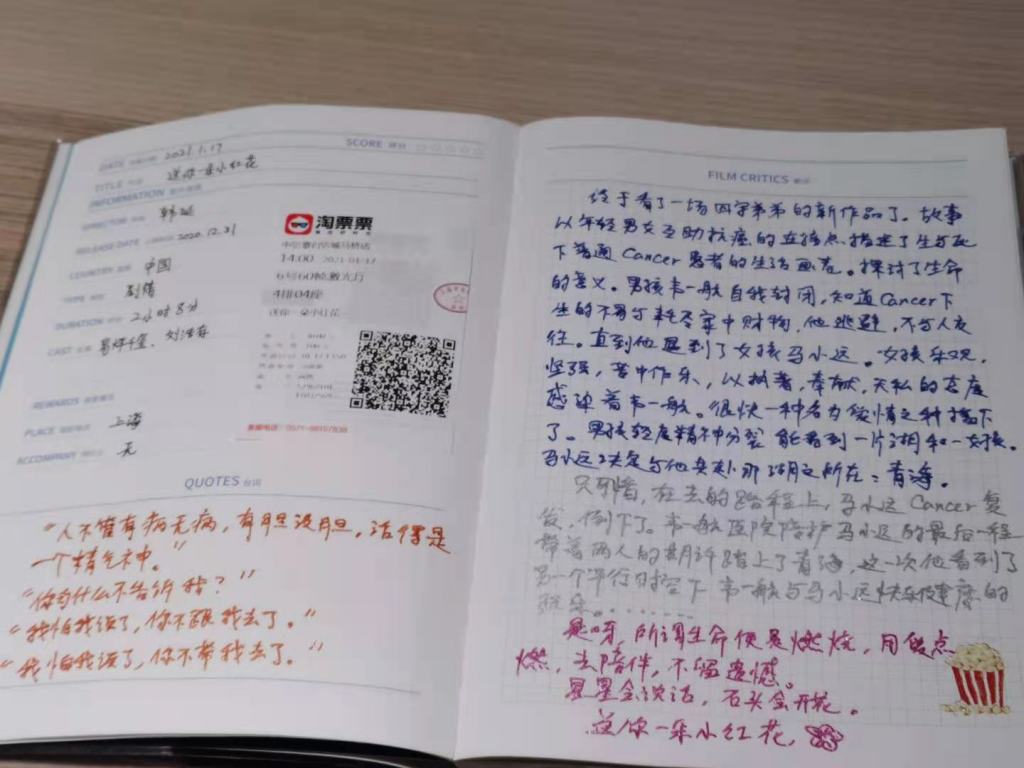 DATE 2021.1.17
SCORE 评分
TITLE 送你一朵小红花
INFORMATION
DIRECTOR 韩延
RELEASE DATE 2020.12.31
COUNTRY 中国
TYPE 剧情
DURATION 2小时8分
CAST 易烊千玺、刘浩存
REWARDS
PLACE 上海
ACCOMPANY 无
淘票票
14:00 2021-01-17
6号60帧激光厅
4排04座
送你一朵小红花
QUOTES 台词
“人不管有病无病，有胆没胆，活得是
一个精气神。”
“你为什么不告诉我？”
“我怕我误了，你不跟我去了。”
“我怕我误了，你不带我去了。”
FILM CRITICS 影评
终于看了一场四字弟弟的新作品了。故事
以年轻男女互助抗癌的连接点，描述了生与死
下普通Cancer患者的生活画卷。探讨了生命
的意义。男孩韦一航自我封闭，知道Cancer下
生的不易与耗尽家中财物，他逃避，不与人交
往。直到他遇到了女孩马小远。女孩乐观，
坚强，苦中作乐，以执着，奉献，无私的态度
感染着韦一航。很快一种名为爱情之种播下
了。男孩轻度精神分裂 能看到一片湖和一女孩。
马小远决定与他奔赴那湖之所在：青海。
只可惜，在去的路程上，马小远Cancer复
发，倒下了。韦一航医院陪护马小远的最后一程
带着两人的期许踏上了青海，这一次他看到了
另一个平行时空下 韦一航与马小远快乐健康的
玩乐。……
是呀，所谓生命便是燃烧，用点
燃，去陪伴，不留遗憾。
星星会说话，石头会开花。
送你一朵小红花，